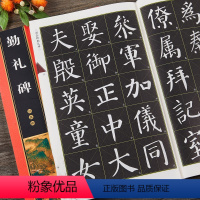 勤礼碑
僚屬拜記室
加儀同
娶御正中大
夫殷英童女
粉象优品